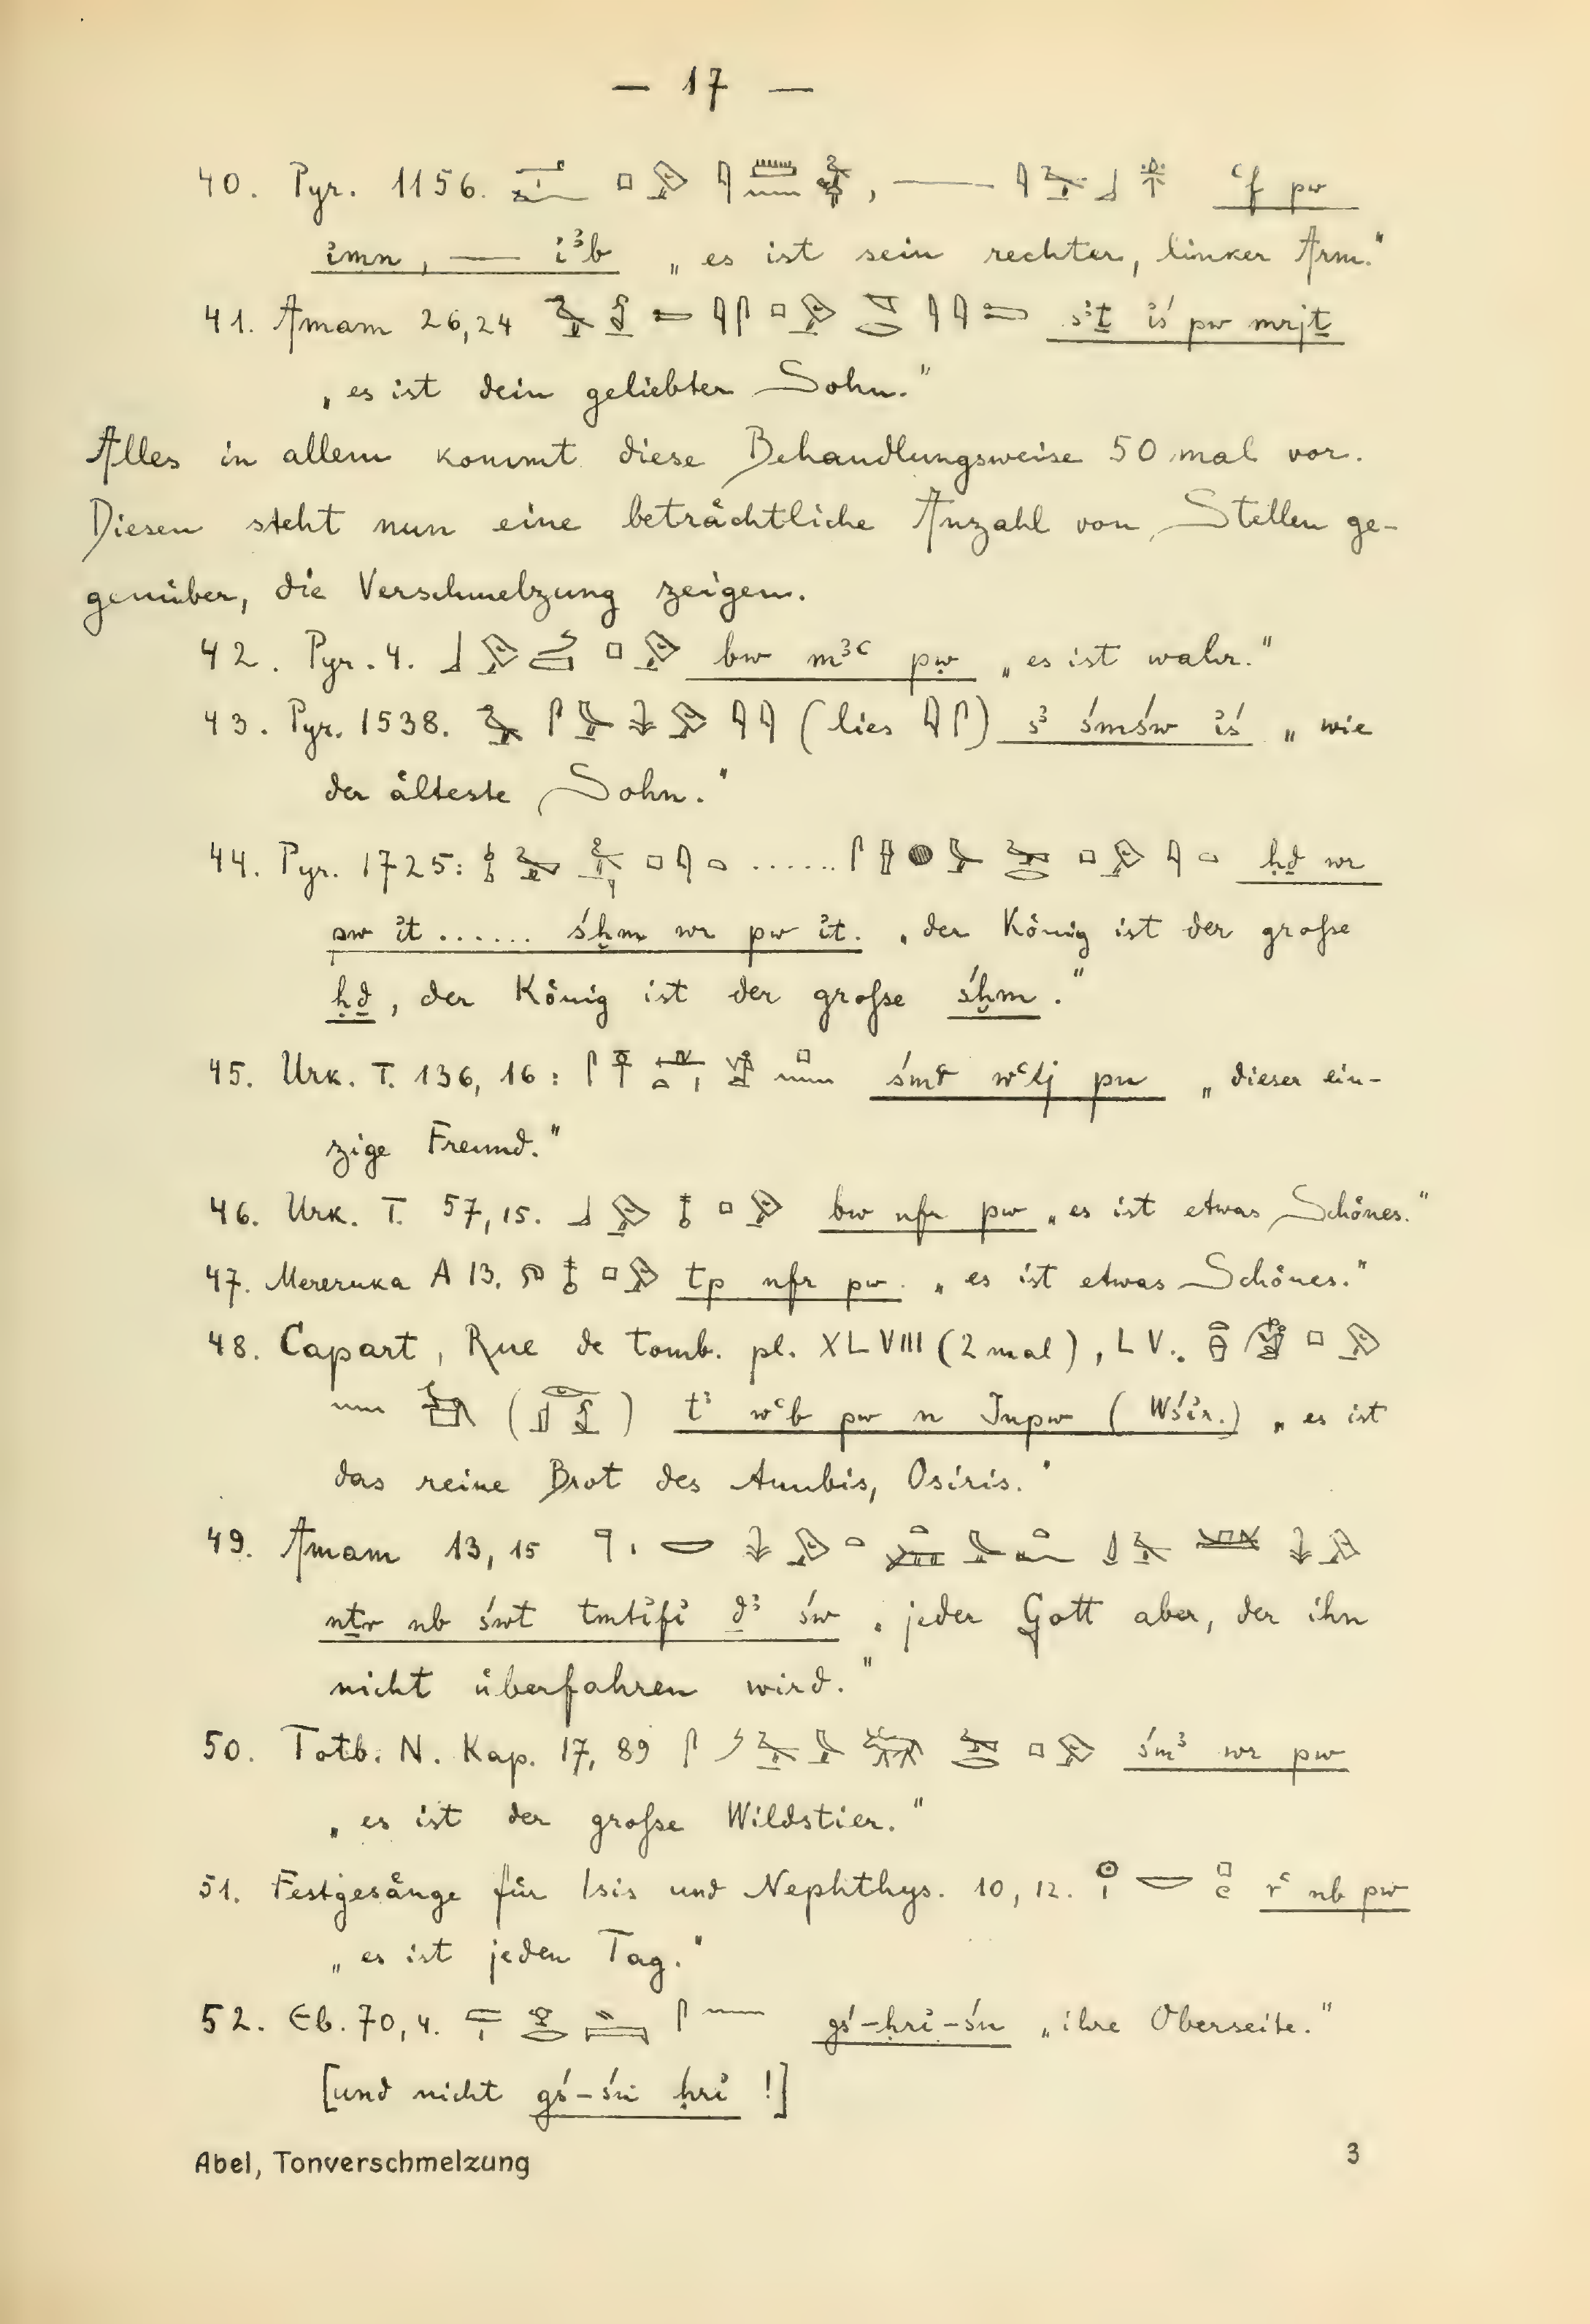 — 17 —
40. Pyr. 1156. , —— ꜥf pw
i̓mn, —— i̓ꜣb „es ist sein rechter, linker Arm."
41. Amam 26,24 sꜣṯ i̓ś pw mrjṯ
„es ist dein geliebter Sohn."
Alles in allem kommt diese Behandlungsweise 50 mal vor.
Diesen steht nun eine beträchtliche Anzahl von Stellen ge-
genüber, die Verschmelzung zeigen.
42. Pyr. 4. bw mꜣꜥ pw „es ist wahr."
43. Pyr. 1538. (lies ) sꜣ śmśw i̓ś „wie
der älteste Sohn."
44. Pyr. 1725: ...... ḥḏ wr
pw i̓t ...... śḫm wr pw i̓t. „der König ist der große
ḥḏ, der König ist der große śḫm."
45. Urk. I. 136, 16: śmr wꜥtj pn „dieser ein-
zige Freund."
46. Urk. I. 57,15. bw nfr pw „es ist etwas Schönes."
47. Mereruka A 13. tp nfr pw. „es ist etwas Schönes."
48. Capart, Rue de tomb. pl. XLVIII (2 mal), LV.
( ) tꜣ wꜥb pw n Inpw (Wśi̓r.) „es ist
das reine Brot des Anubis, Osiris."
49. Amam 13, 15
nṯr nb śwt tmti̓fi̓ ḏꜣ św „jeder Gott aber, der ihn
nicht überfahren wird."
50. Totb. N. Kap. 17, 89 śmꜣ wr pw
„es ist der große Wildstier."
51. Festgesänge für Isis und Nephthys. 10, 12. rꜥ nb pw
„es ist jeden Tag."
52. Eb. 70, 4. gś-ḥri̓-śn „ihre Oberseite."
[und nicht gś-śn ḥri̓ !]
Abel, Tonverschmelzung 3